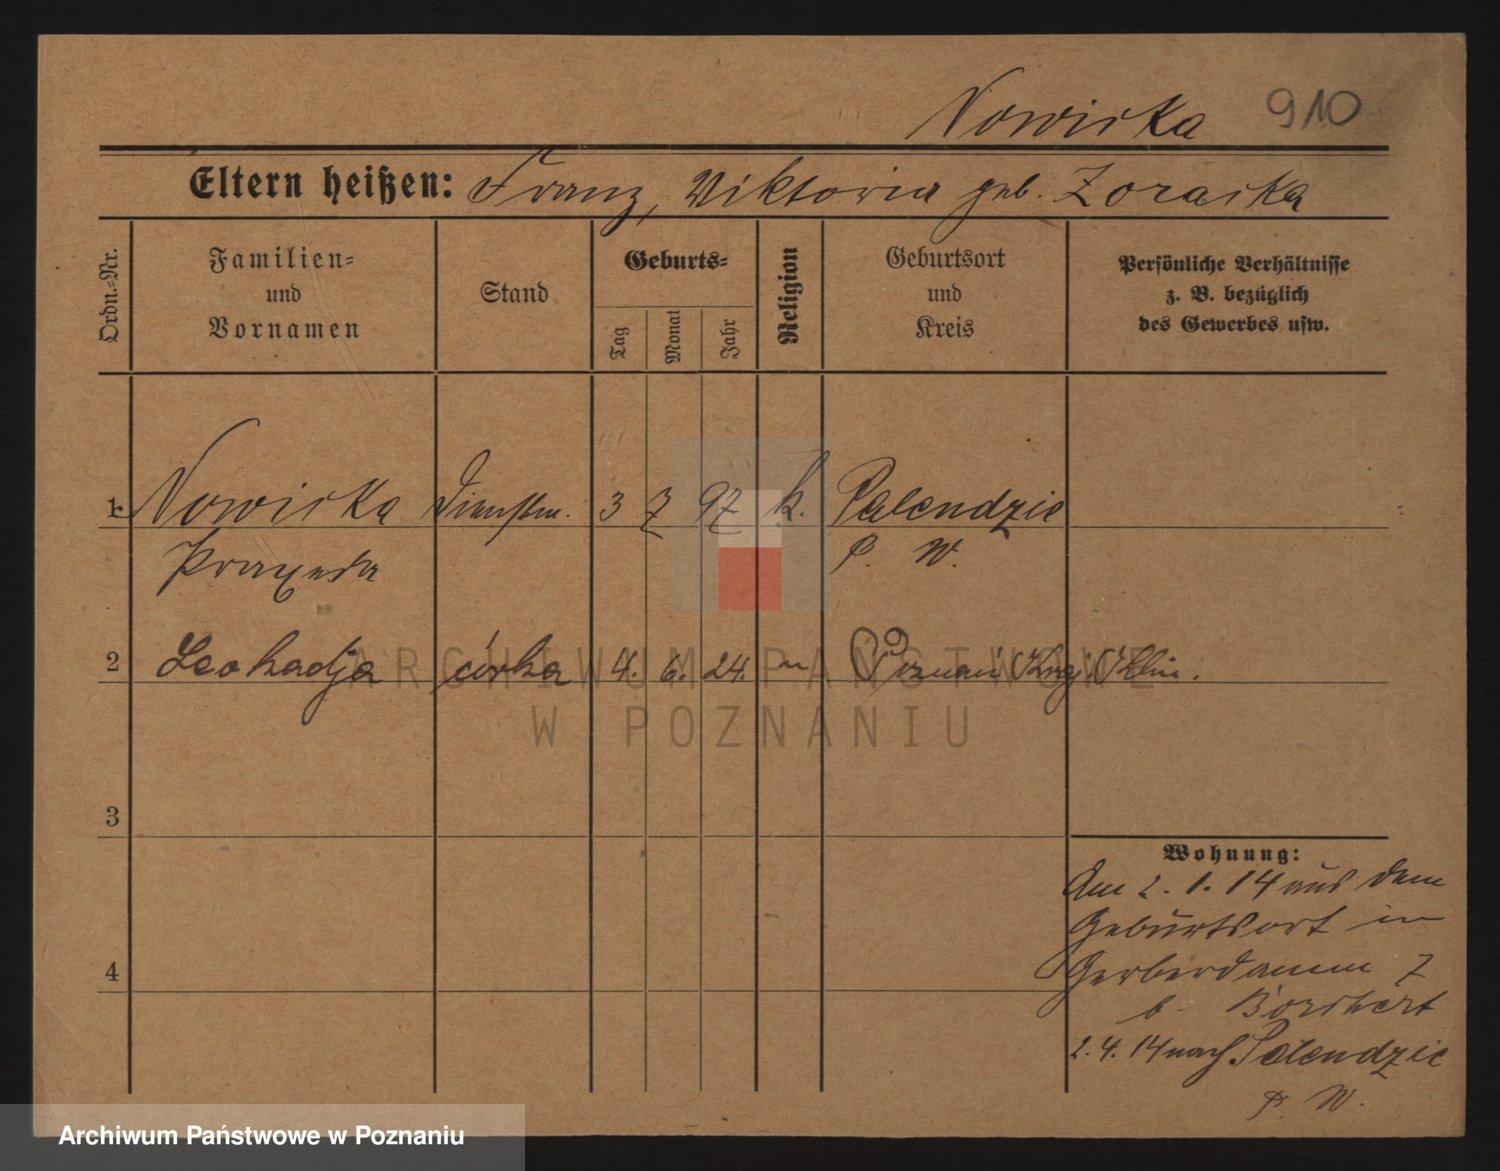 Nowicka 910
Eltern heißen: Franz, Viktoria geb. Zoracka
Ordn.-Nr.
Familien-
und
Vornamen
Stand
Geburts-
Tag
Monat
Jahr
Religion
Geburtsort
und
Kreis
Persönliche Verhältnisse
z. B. bezüglich
des Gewerbes usw.
1. Nowicka Dienstm. 3 7 97 k. Palendzie
Praxeda P. W.
2 Leokadja córka 4. 6. 24. " Poznań
3
Wohnung:
Am 2. 1. 14 aus dem
Geburtsort in
Gerberdamm 7
4
b. Borchert
2. 4. 14 nach Palendzie
P. W.
ARCHIWUM PAŃSTWOWE
W POZNANIU
Archiwum Państwowe w Poznaniu